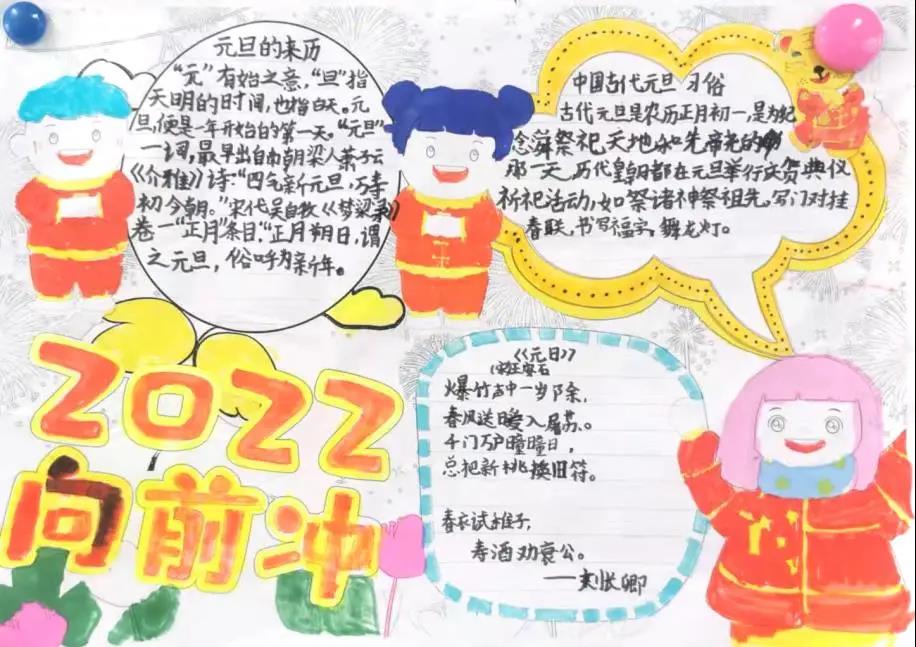 元旦的来历
“元”有始之意，“旦”指
天明的日时间，也指白天。元
旦，便是一年开始白的第一天。“元旦”
一词，最早出自南朝梁人萧子云
《介雅》诗：“四气新元旦，万寿
初今朝。”宋代吴自牧《梦梁录》
卷一“正月”条目：“正月朔日，谓
之元旦，俗呼为新年。
中国古代元旦习俗
古代元旦是农历正月初一，是为纪
念舜祭祀天地和先帝尧的
那一天，历代皇朝都在元旦举行庆贺典仪
祈祀活动，如祭诸神祭祖先，写门对挂
春联，书写福字，舞龙灯。
2022
向前冲
《元日》
宋王安石
爆竹声中一岁除，
春风送暖入屠苏。
千门万户曈曈日，
总把新桃换旧符。
春衣试稚子，
寿酒劝衰公。
——刘长卿